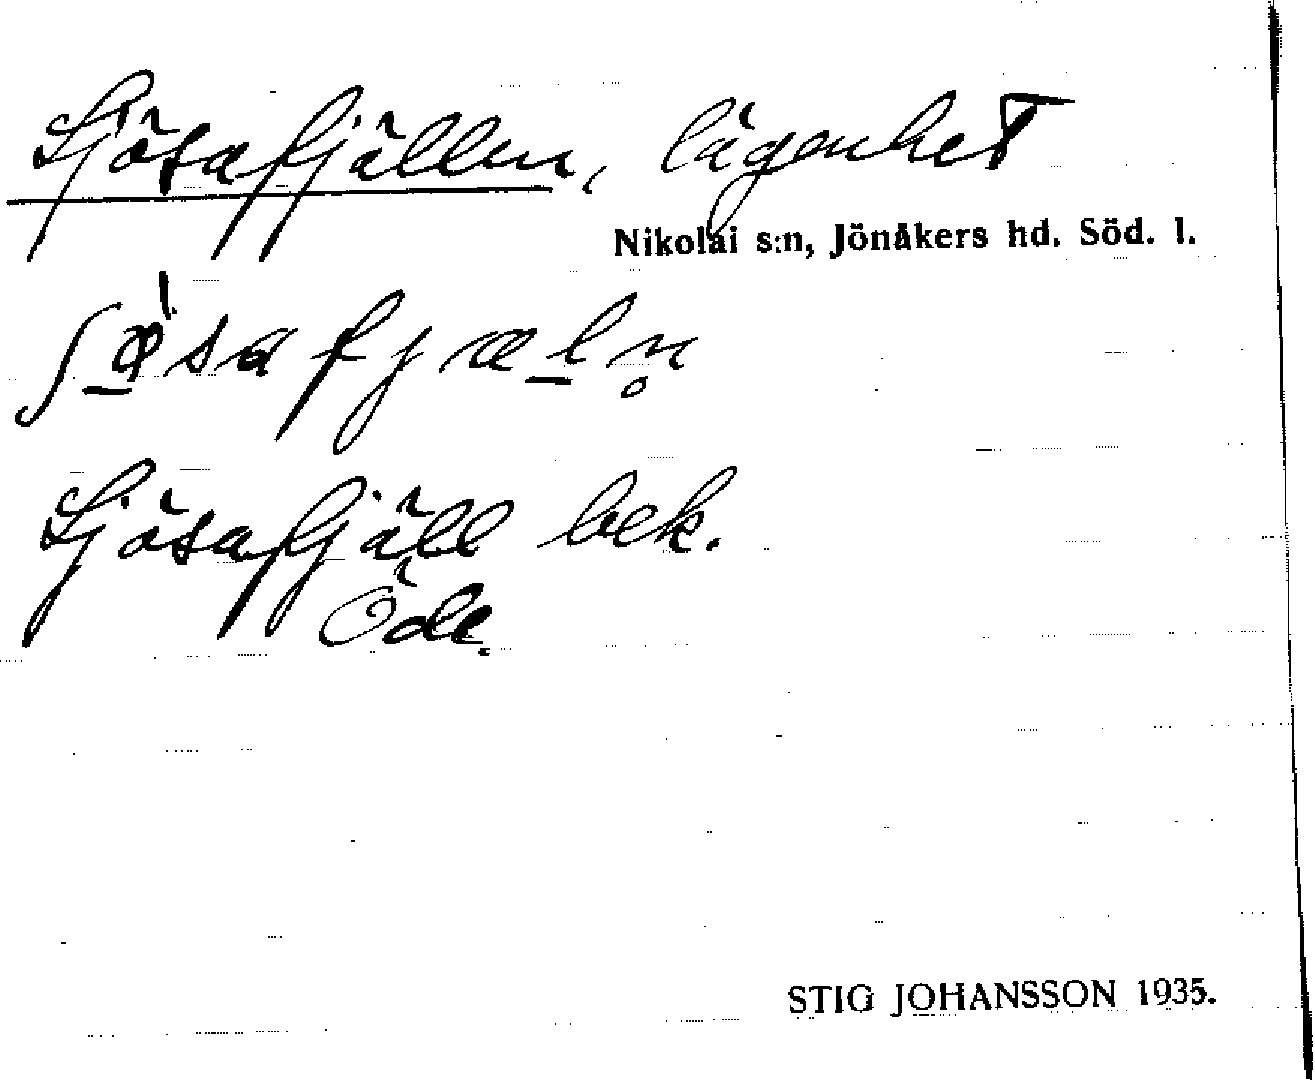 Sjösafjällen, lägenhet
Nikolai s:n, Jönåkers hd. Söd. l.
Sjösafjäll bek.
Öde.
STIG JOHANSSON 1935.